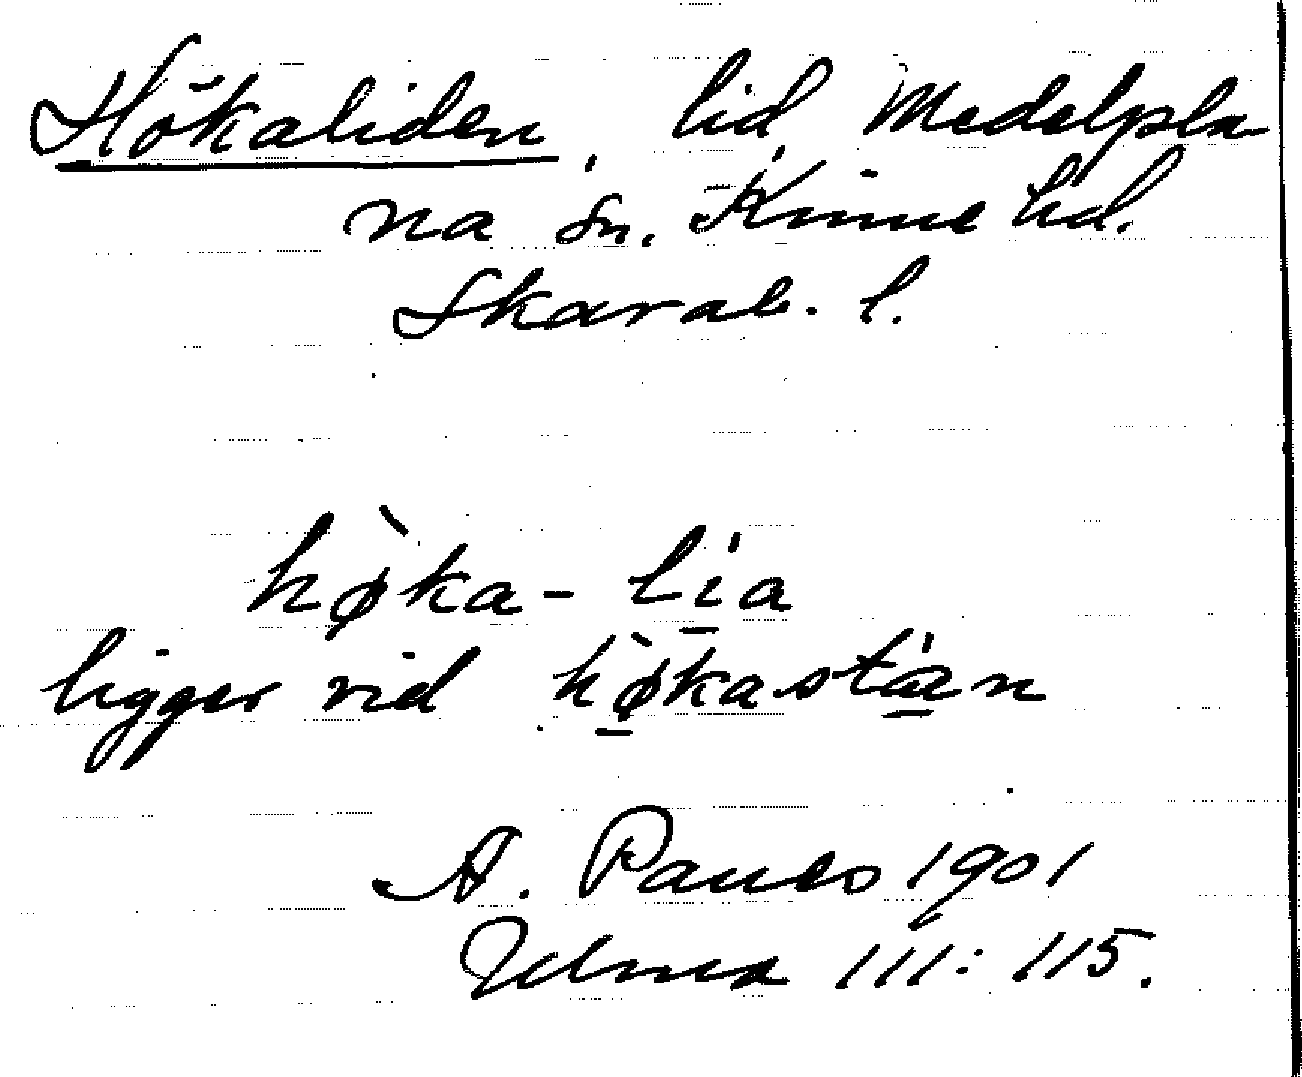 Hökaliden, lid, Medelpla-
na sn. Kinne hd.
Skarab. l.
hø̀ka-lí̱a
ligger vid hø̱̀kastá̱n
A. Paues 1901
Ulma 111: 115.